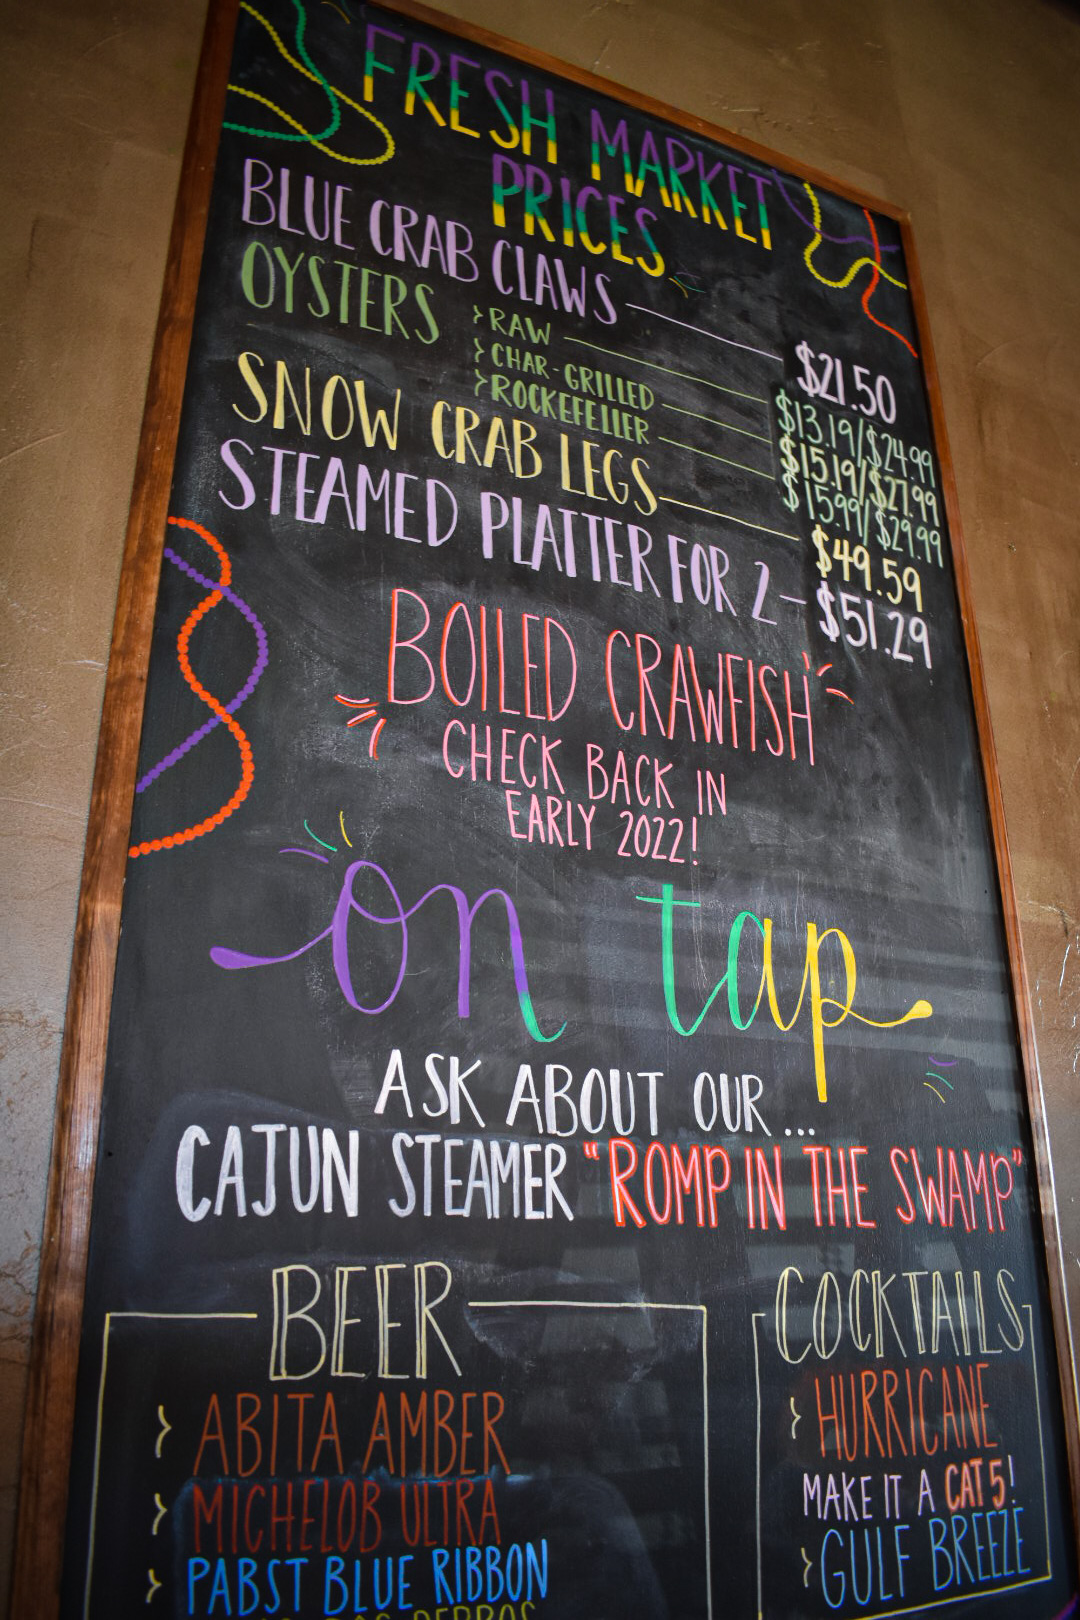 FRESH MARKET
PRICES
BLUE CRAB CLAWS $21.50
OYSTERS
RAW $13.19/$24.99
CHAR-GRILLED $15.19/$27.99
ROCKEFELLER $15.99/$29.99
SNOW CRAB LEGS $49.59
STEAMED PLATTER FOR 2 - $51.29
BOILED CRAWFISH
CHECK BACK IN
EARLY 2022!
on tap
ASK ABOUT OUR...
CAJUN STEAMER "ROMP IN THE SWAMP"
BEER
ABITA AMBER
MICHELOB ULTRA
PABST BLUE RIBBON
COCKTAILS
HURRICANE
MAKE IT A CAT 5!
GULF BREEZE